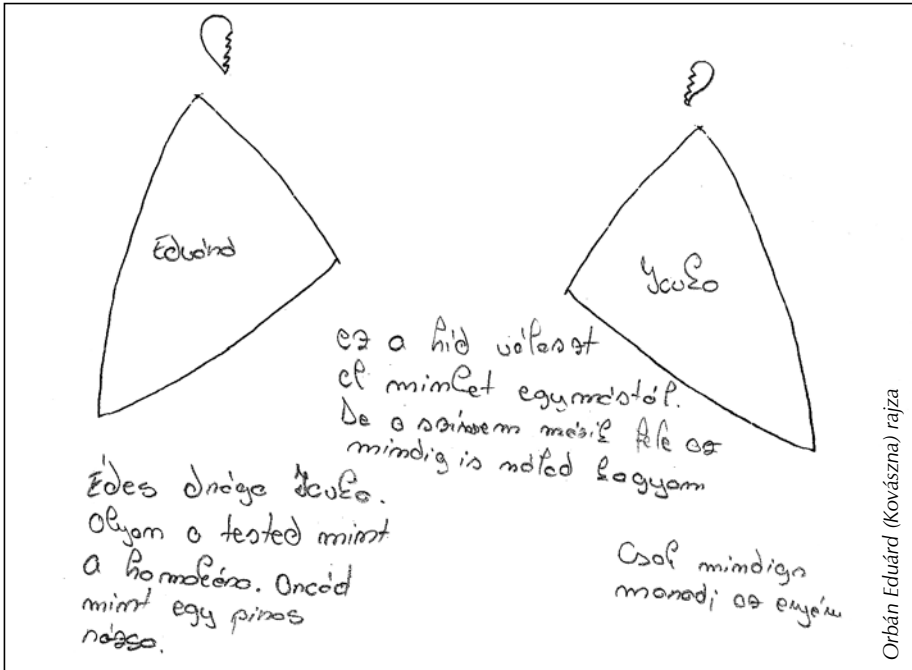 Eduárd
Icuka
ez a híd választ
el minket egymástól.
De a szívem másik fele az
mindig is nálad hagyom
Édes drága Icuka.
Olyan a tested mint
a homokóra. Arcod
mint egy piros
rózsa.
Csak mindig
maradj az enyém
Orbán Eduárd (Kovászna) rajza